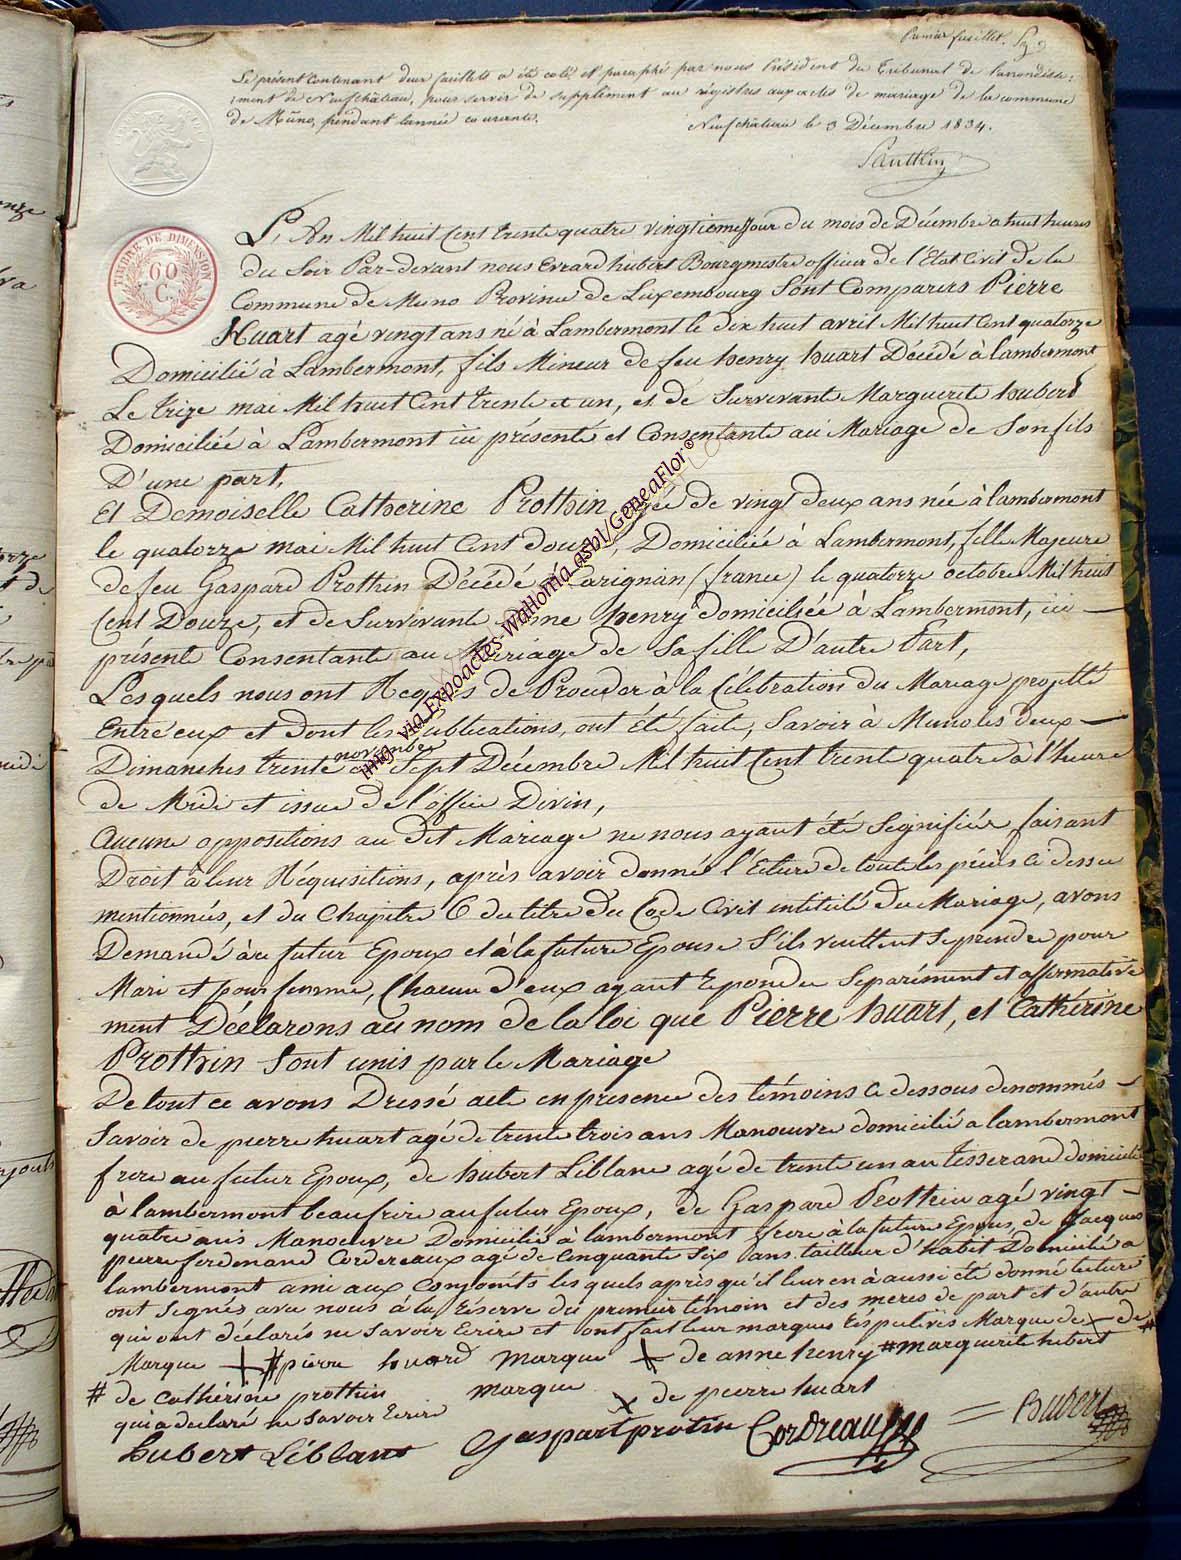 Premier feuillet.
Le présent Contenant deux feuillets a été coté et paraphé par nous Président du Tribunal de l'arrondisse-
ment de Neufchâteau, pour servir de supplément au régistres aux actes de mariage de la commune
de Muno, pendant l'année courante.
Neufchâteau le 3 Décembre 1834.
TIMBRE DE DIMENSION
60
C.
L'An Mil huit Cent trente quatre vingtieme Jour du mois de Décembre a huit heures
du Soir Par-devant nous Evrard hubert Bourgmestre officier de l'Etat Civil de la
Commune de Muno Province de Luxembourg Sont Comparus Pierre
Huart agé vingt ans né à Lambermont le dix huit avril Mil huit Cent quatorze
Domicilié à Lambermont, fils Mineur de feu henry huart Décédé à lambermont
Le treize mai Mil huit Cent trente et un, et de Survivante Marguerite hubert
Domiciliée à Lambermont ici présente et Consentante au Mariage de Son fils
D'une part,
Et Demoiselle Catherine Prothin agée de vingt deux ans née à lambermont
le quatorze mai Mil huit Cent douze, Domiciliée à Lambermont, fille Majeure
de feu Gaspard Prothin Décédé à Carignan (france) le quatorze octobre Mil huit
Cent Douze, et de Survivante Anne henry domiciliée à Lambermont, ici
présente Consentante au Mariage de Sa fille D'autre Part,
Lesquels nous ont Requis de Proceder à la Célébration du Mariage projetté
Entre eux et dont les Publications, ont été faite, Savoir à Muno les deux
novembre
Dimanches trente et Sept Décembre Mil huit Cent trente quatre à l'heure
de Midi et issue de l'office Divin,
Aucune oppositions au dit Mariage ne nous ayant été Signifiée faisant
Droit à leur Réquisitions, après avoir donné l'Ecture de toute les pièces ci dessu
mentionnées, et du Chapitre 6 du titre du Code Civil intitulé du Mariage, avons
Demandé au futur Epoux et à la future Epouse S'ils veullent Se prendre pour
Mari et pour femme, Chacun d'eux ayant repondu Separément et affirmative
ment Déclarons au nom de la loi que Pierre huart, et Cathérine
Prothin Sont unis par le Mariage
De tout ce avons Dressé acte en presence des témoins ci dessous denommés
Savoir de pierre huart agé de trente trois ans Manoeuvre domicilié a lambermont
frere au futur Epoux, de hubert Léblanc agé de trente un an tisserand domicilié
à lambermont beaufrire au futur Epoux, de Gaspard Prothin agé vingt
quatre ans Manoeuvre Domicilié à lambermont frere à la future Epous, de Jacques
pierre ferdinand Cordereaux agé de Cinquante Six ans tailleur d'habit Domicilié a
lambermont ami aux Conjoints les quels après qu'il leur en à aussi été donné lecture
ont Signés avec nous à la réserve du premier témoin et des meres de part et d'autre
qui ont déclarés ne Savoir Ecrire et ont fait leur marques Réspectives Marque de × de #
Marque + # pierre huard marque × de anne henry # marguerite hubert
# de Cathérine prothin marque × de pierre huart
qui a declaré ne Savoir Ecrire
hubert Léblant Gaspart protin Cordreaux = Hubert
img. via Expoactes-Wallonia.asbl/GeneaFlor©